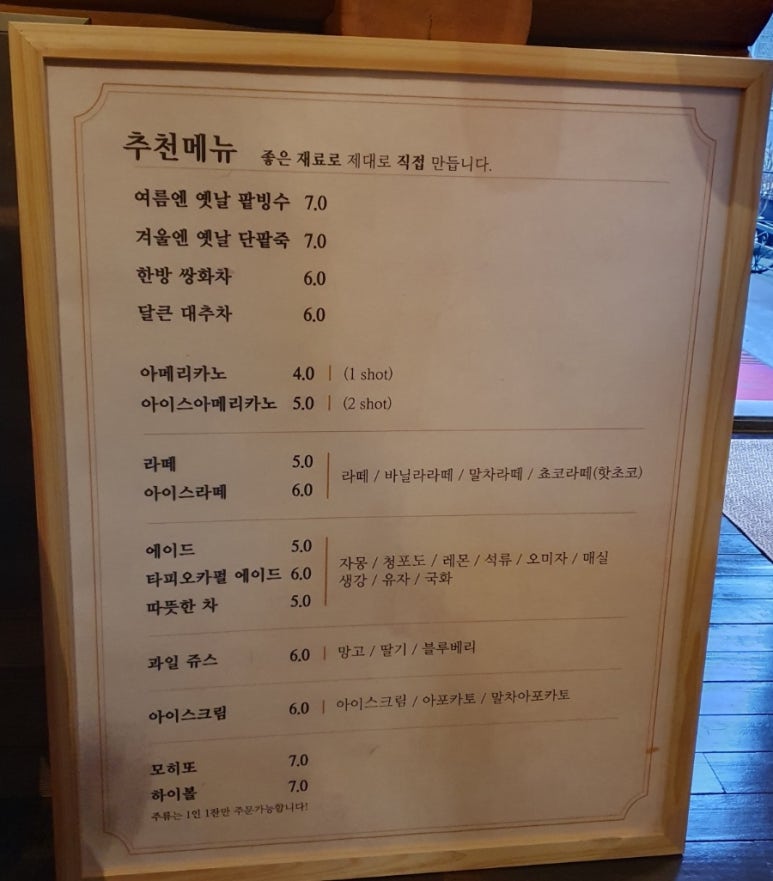 추천메뉴 좋은 재료로 제대로 직접 만듭니다.
여름엔 옛날 팥빙수 7.0
겨울엔 옛날 단팥죽 7.0
한방 쌍화차 6.0
달큰 대추차 6.0
아메리카노 4.0 | (1 shot)
아이스아메리카노 5.0 | (2 shot)
라떼 5.0
라떼 / 바닐라라떼 / 말차라떼 / 쵸코라떼(핫초코)
아이스라떼 6.0
에이드 5.0
자몽 / 청포도 / 레몬 / 석류 / 오미자 / 매실
타피오카펄 에이드 6.0
생강 / 유자 / 국화
따뜻한 차 5.0
과일 쥬스 6.0 | 망고 / 딸기 / 블루베리
아이스크림 6.0 | 아이스크림 / 아포카토 / 말차아포카토
모히또 7.0
하이볼 7.0
주류는 1인 1잔만 주문가능합니다!